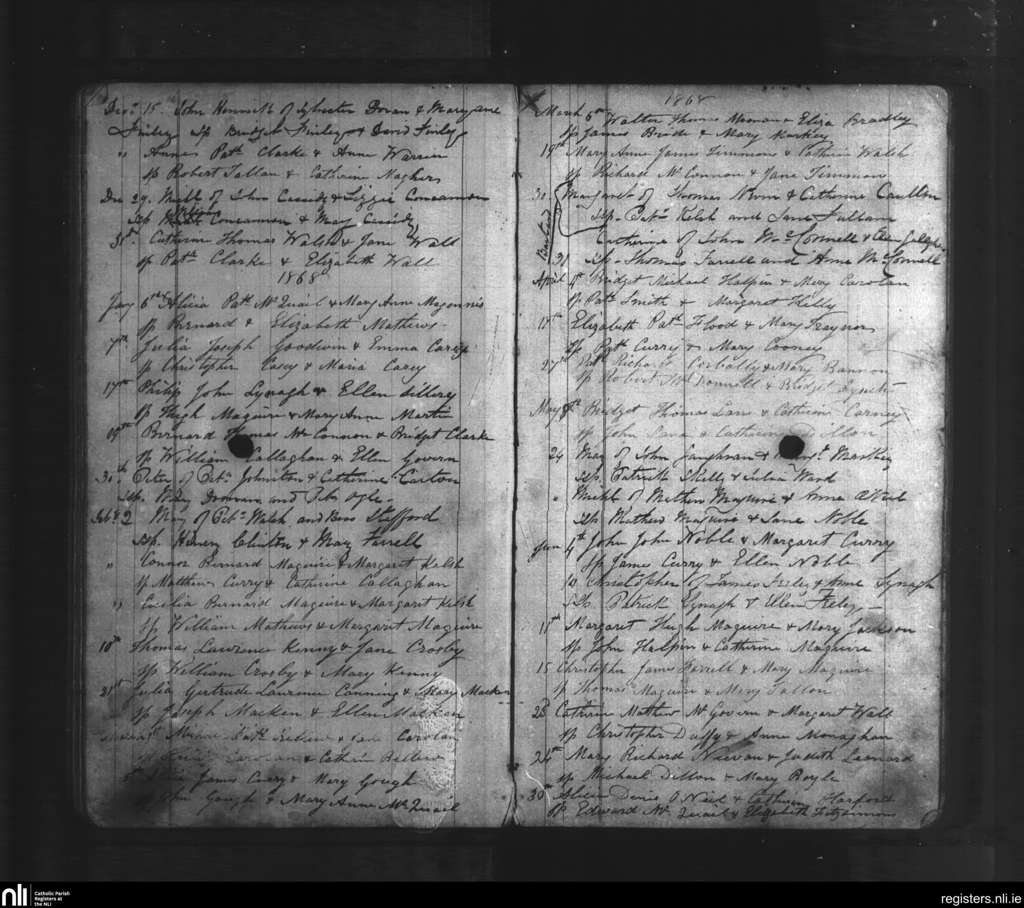 Decr 15. John Kenneth of Sylvester Doran & Mary Anne
Finley Sp Bridget Finley & David Finley
" Annes Patk Clarke & Anne Warren
Sp Robert Tallan & Catherine Maghers
Dec 29. Michl of John Cassidy & Lizzie Concannon
Sp Concannon & Mary Cassidy
31st Catherine Thomas Walsh & Jane Wall
Sp Patk Clarke & Elizabeth Wall
1868
Jany 6th Alicia Patk McQuail & Mary Anne Magennis
Sp Bernard & Elizabeth Mathews
7th Julia Joseph Goodwin & Emma Carey
Sp Christopher Casey & Maria Casey
17th Philip John Lynagh & Ellen Sillery
Sp Hugh Maguire & Mary Anne Martin
19th Bernard Thomas McConnon & Bridget Clarke
Sp William Callaghan & Ellen Govern
30th Peter of Patk Johnston & Catherine Carton
Sp. Mary and Ptk Ogle
Feby 2 Mary of Patk Walsh and Stafford
Sp. Henery Clinton & Mary Farrell
" Connor Bernard Maguire & Margaret Kelsh
Sp Matthew Curry & Catherine Callaghan
" Cecilia Bernard Maguire & Margaret Kelsh
Sp William Mathews & Margaret Maguire
10th Thomas Lawrence Kenny & Jane Crosby
Sp William Crosby & Mary Kenny
21st Julia Gertrude Laurence Canning & Mary Macken
Sp Joseph Macken & Ellen Macken
Patk & Carolan
Carolan & Cathrin Bellew
James Curry & Mary Gough
Sp John Gough & Mary Anne McQuail
1868
March 6th Walter Thomas Noonan & Eliza Bradley
Sp James Bride & Mary
19th Mary Anne James Timmons & Catherin Walsh
Sp Richard McConnon & Jane Timmon
30 Margaret of Thomas & Catherine Caulton
Sp. Patk Kelsh and Jane Fullam
Baptised
Catherine of John McConnell &
31 Sp. Thomas Farrell and Anne McConnell
April 4th Bridget Michael Halpin & Mary Carolan
Sp Patk Smith & Margaret Hilly
18th Elizabeth Patk Flood & Mary Traynor
Sp Patk Curry & Mary Cooney
27th Patk Richard Corbally & Mary Bannon
Sp Robert McDonnell & Bridget Lynch
May 8th Bridget Thomas Lane & Catherine Carney
Sp John Lane & Catharine Dillon
24 Mary of John Gaughran &
Sp. Patrick Skelly & Julia Ward
" Michl of Mathew Maguire & Anne
Sp Mathew Maguire & Jane Noble
June 4th John John Noble & Margaret Curry
Sp James Curry & Ellen Noble
10 Christopher of James Feeley & Anne Lynagh
Sp Patrick Lynagh & Ellen Feeley
11th Margaret Hugh Maguire & Mary Jackson
Sp John Halpin & Catherine Maguire
15 Christopher James Farrell & Mary Maguire
Sp Thomas Maguire & Mary Tallon
23 Cathrin Matthew McGovern & Margaret Wall
Sp Christopher Duffy & Anne Monaghan
24th Mary Richard & Judith Leonard
Sp Michael Dillon & Mary Boyle
30th Denis O Neil & Catherine Harford
Sp Edward McQuail & Elizabeth Fitzsimons
nli
Catholic Parish
Registers at
the NLI
registers.nli.ie